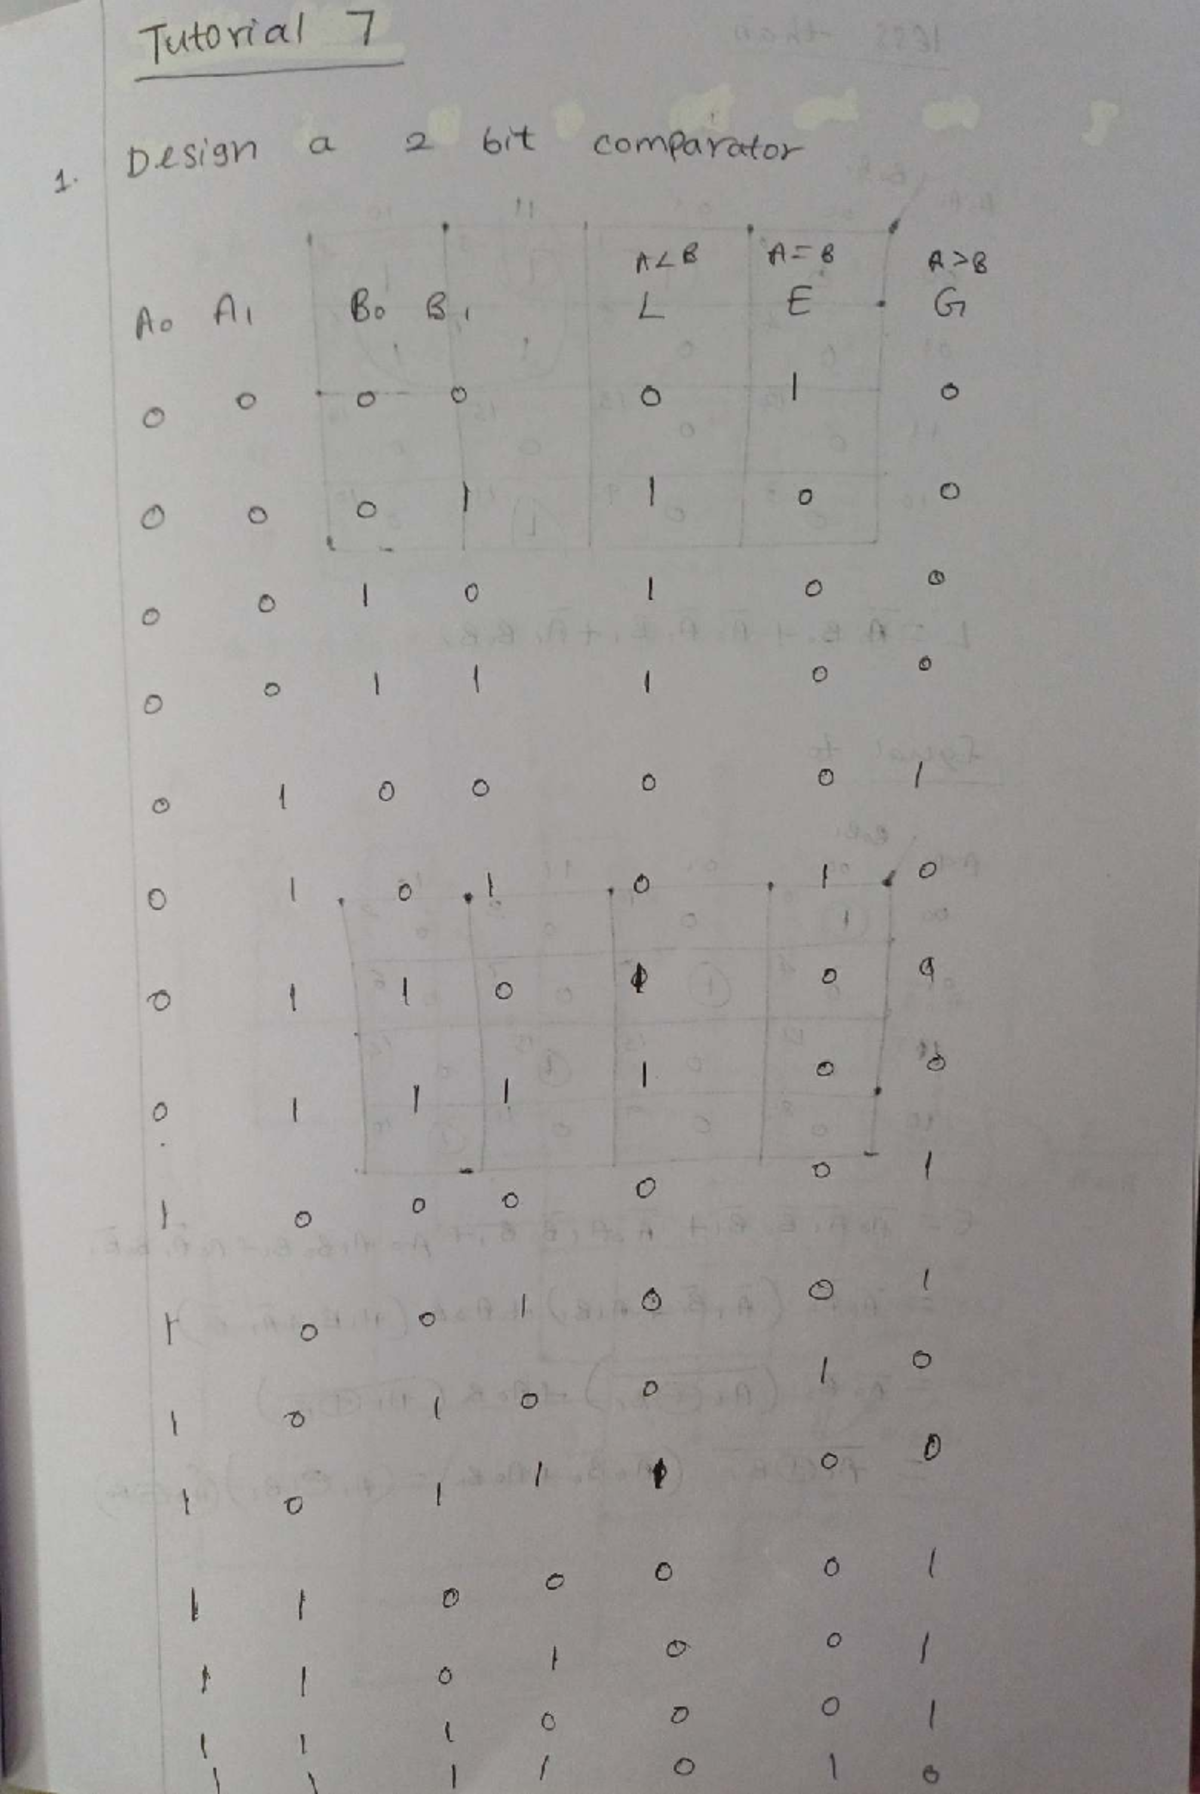 Tutorial 7
1. Design a 2 bit comparator
A<B A=B A>B
A0 A1 B0 B1 L E G
0 0 0 0 0 1 0
0 0 0 1 1 0 0
0 0 1 0 1 0 0
0 0 1 1 1 0 0
0 1 0 0 0 0 1
0 1 0 1 0 1 0
0 1 1 0 1 0
0 1 1 1 1 0 0
1 0 0 0 0 0 1
1 0 0 1 0 0 1
1 0 1 0 0 1 0
1 0 1 1 1 0 0
1 1 0 0 0 0 1
1 1 0 1 0 0 1
1 1 1 0 0 0 1
1 1 1 1 0 1 0